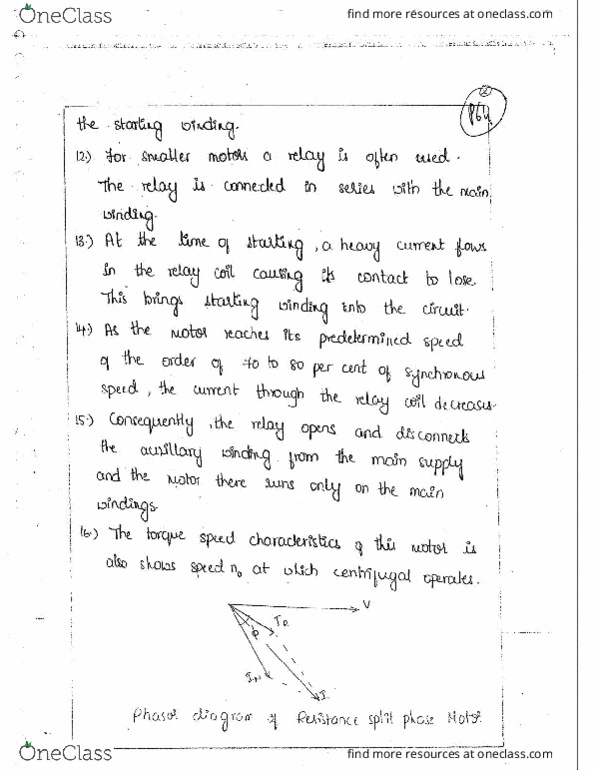 OneClass
find more resources at oneclass.com
P64
the starting winding.
12.) For smaller motors a relay is often used.
The relay is connected in series with the main
winding.
13.) At the time of starting, a heavy current flows
in the relay coil causing its contact to lose.
This brings starting winding into the circuit.
14.) As the motor reaches its predetermined speed
of the order of 70 to 80 per cent of synchronous
speed, the current through the relay coil decreases.
15.) Consequently, the relay opens and disconnects
the auxillary winding from the main supply
and the motor there runs only on the main
windings.
16.) The torque speed characteristics of this motor is
also shows speed n₀ at which centrifugal operates.
V
φ
I
Phasor diagram of Resistance split phase Motor
OneClass
find more resources at oneclass.com